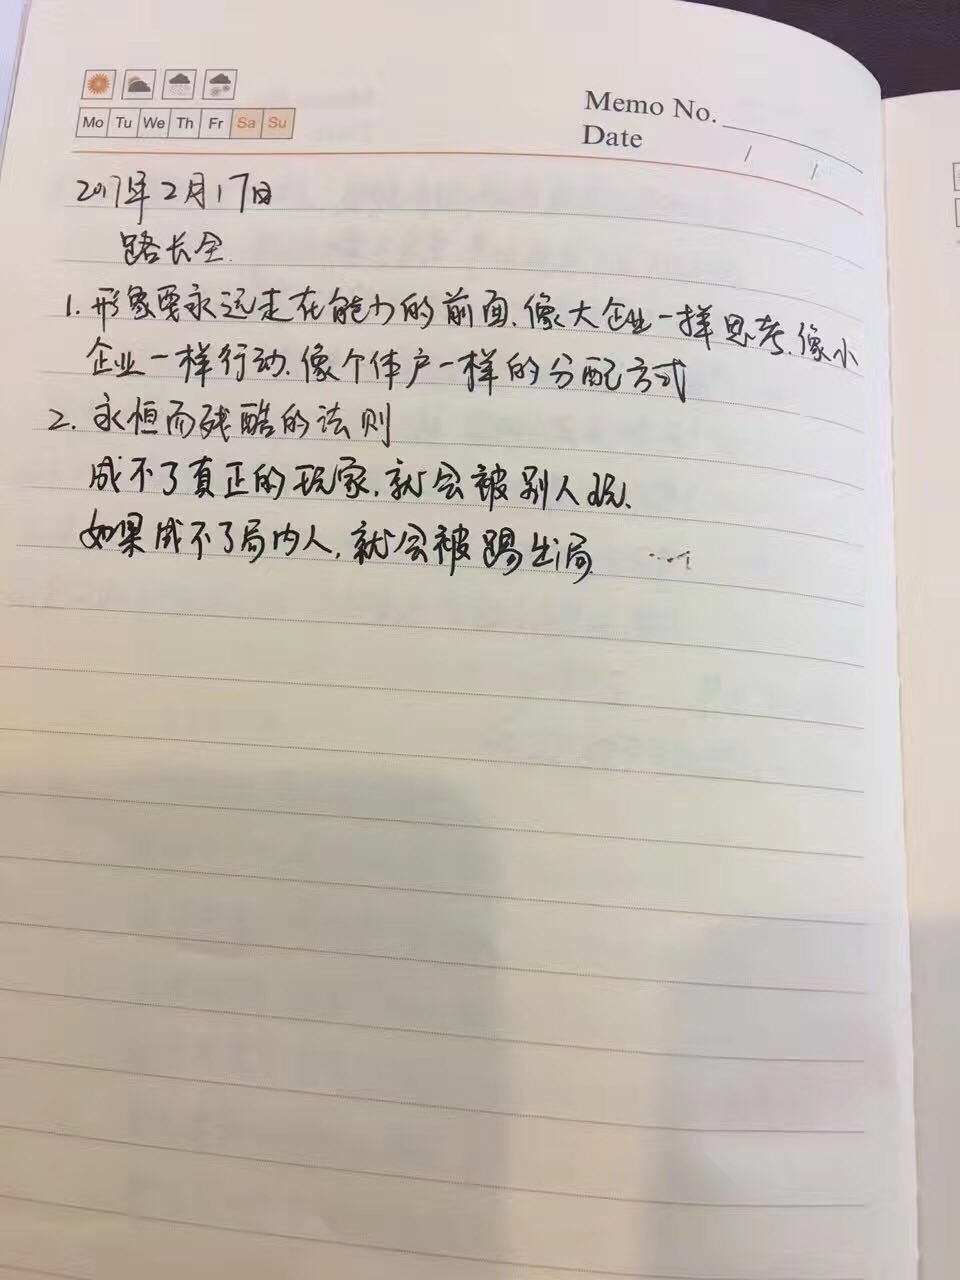 Mo Tu We Th Fr Sa Su
Memo No.
Date / /
2017年2月17日
路长全.
1. 形象要永远走在能力的前面.像大企业一样思考.像小
企业一样行动.像个体户一样的分配方式
2. 永恒而残酷的法则
成不了真正的玩家.就会被别人玩.
如果成不了局内人.就会被踢出局.